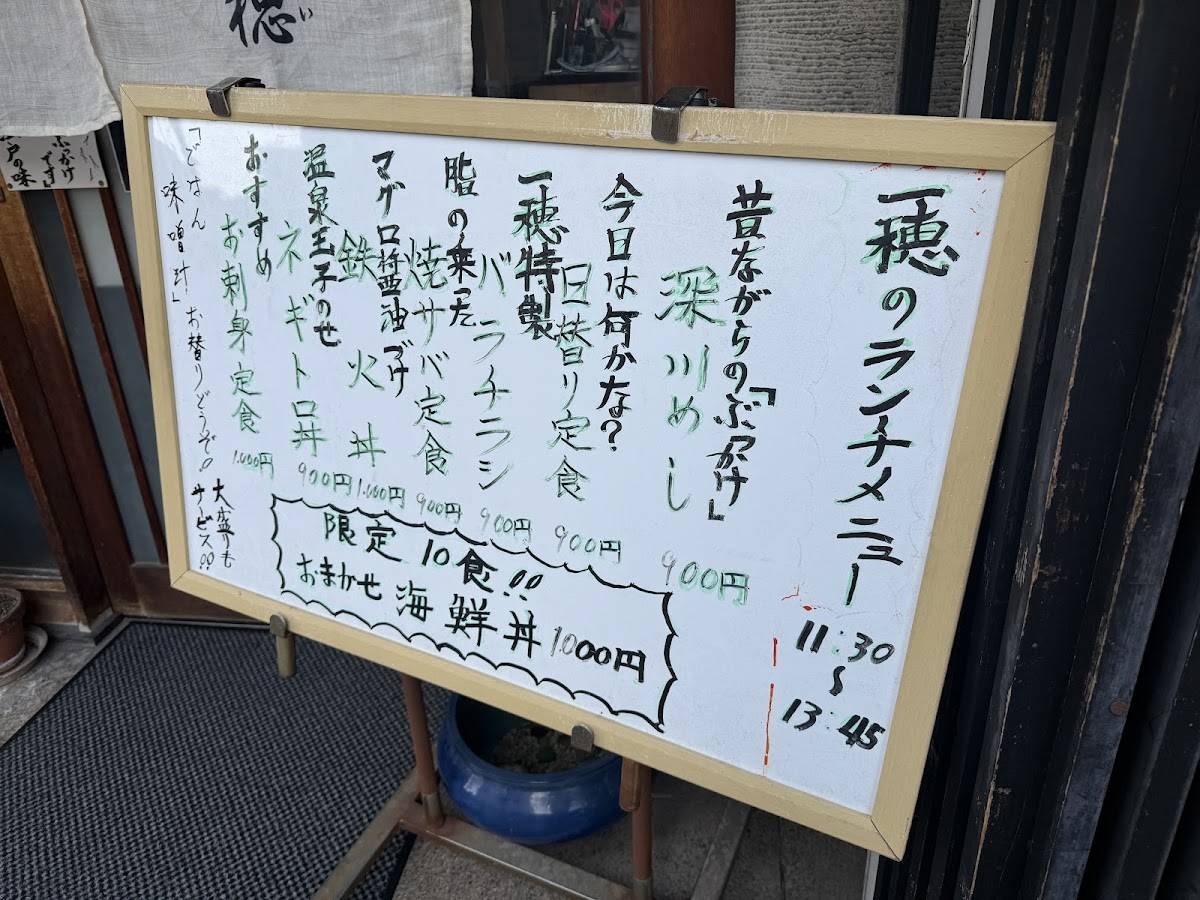 一穂のランチメニュー
11:30
～
13:45
昔ながらの「ぶっかけ」
深川めし
900円
今日は何かな?
日替り定食
900円
一穂特製
バラチラシ
900円
脂の来った
焼サバ定食
900円
マグロ醤油づけ
鉄火丼
1,000円
温泉玉子のせ
ネギトロ丼
900円
おすすめ
お刺身定食
1,000円
「ごはん
味噌汁」お替りどうぞ!
大盛りも
サービス!!
限定10食!!
おまかせ海鮮丼1000円
穂
い
ぶっかけ
です
戸の味